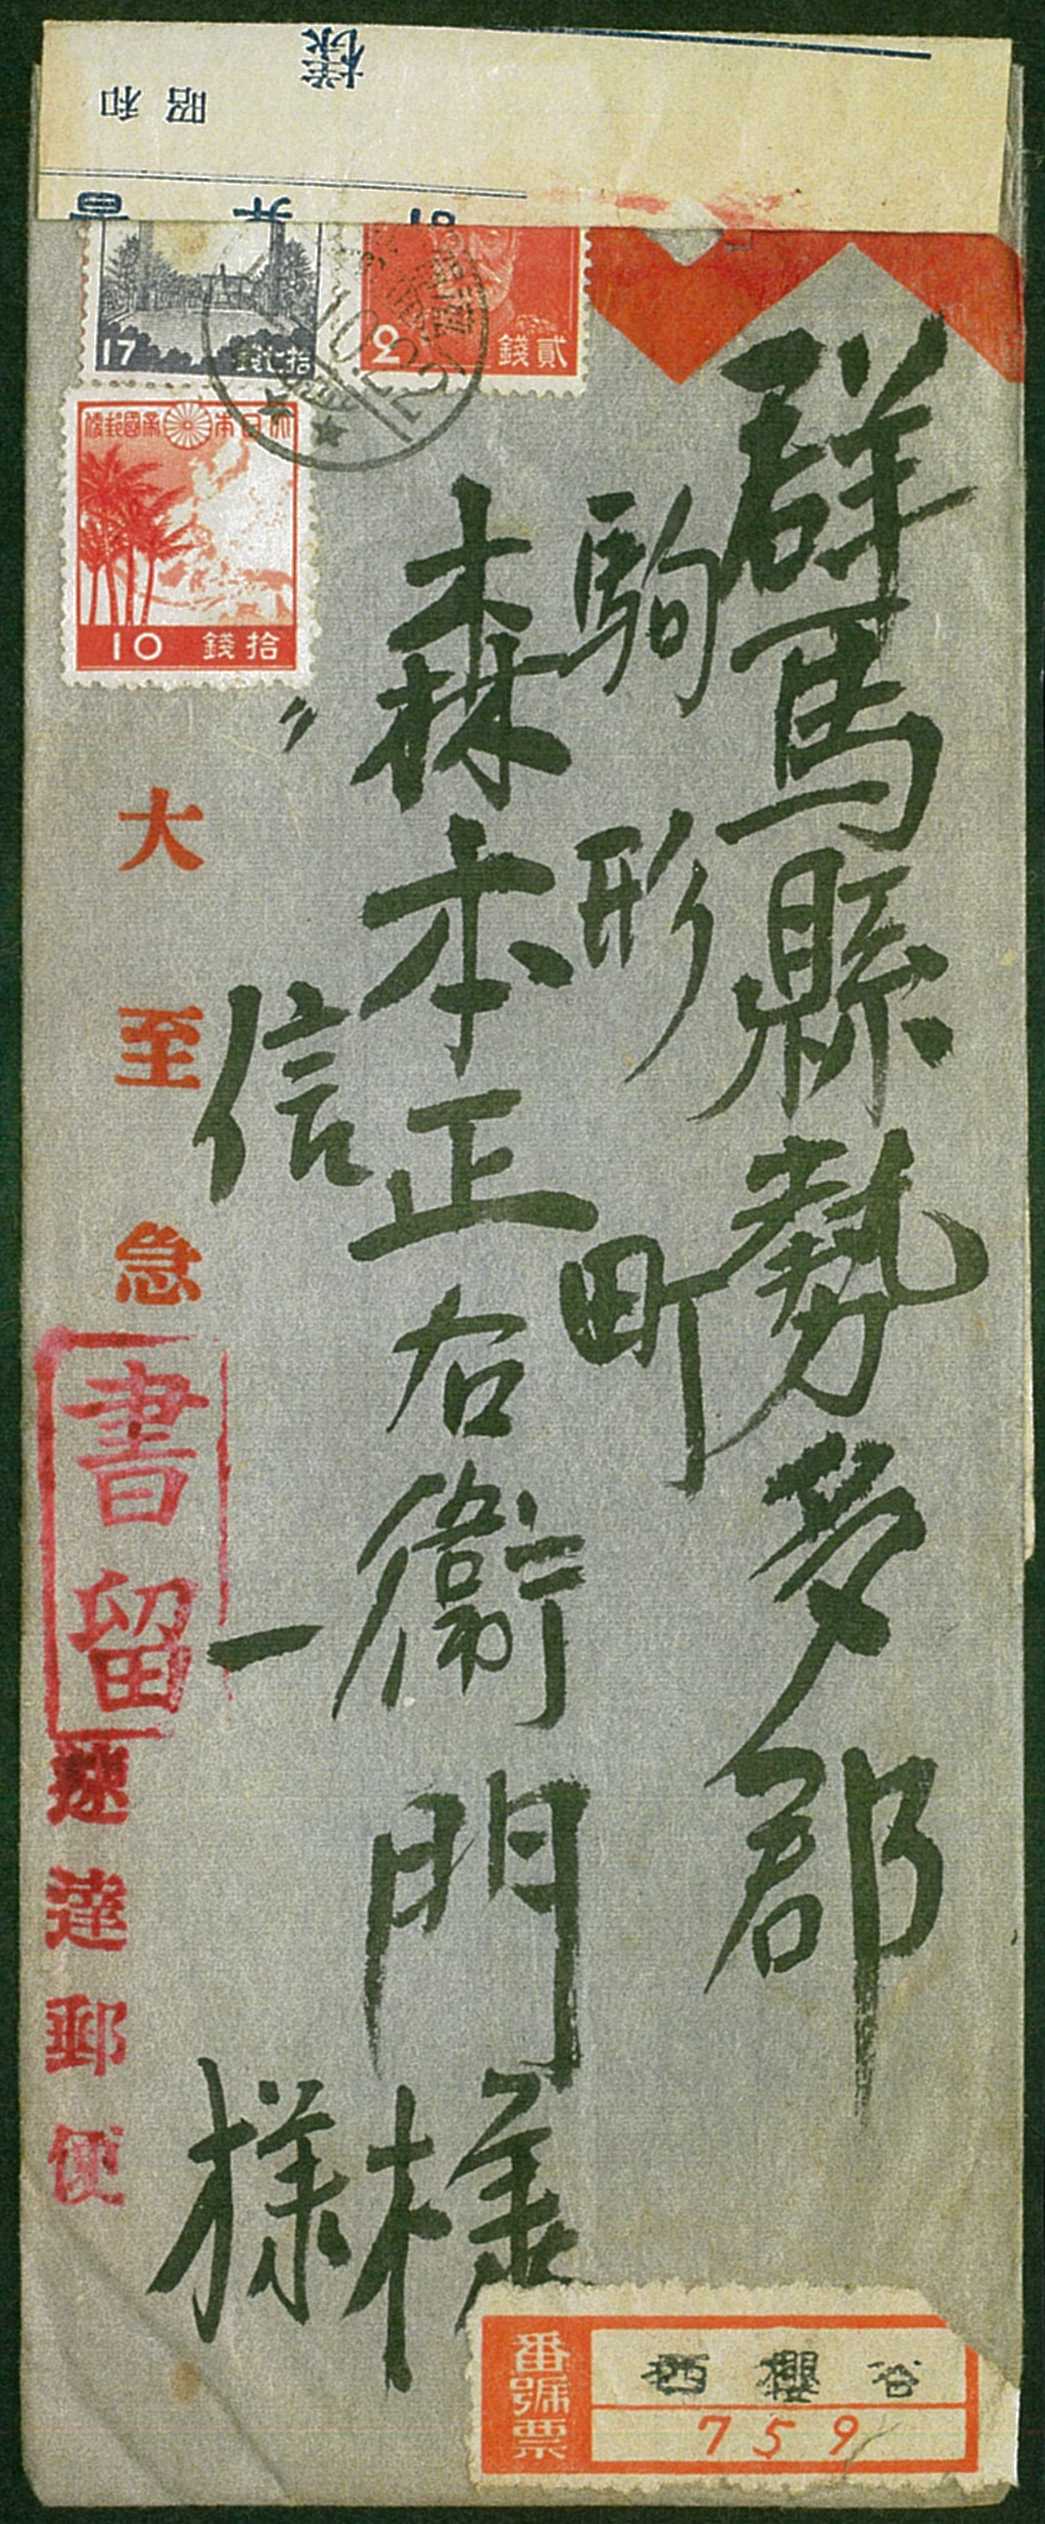 様
昭和
計 算 書
17 拾七錢
2 貳錢
大日本帝國郵便
10 拾錢
群馬縣勢多郡
駒形町
森本正右衛門様
〃 信一様
大至急
書留
速達郵便
番號票
西櫻谷
759